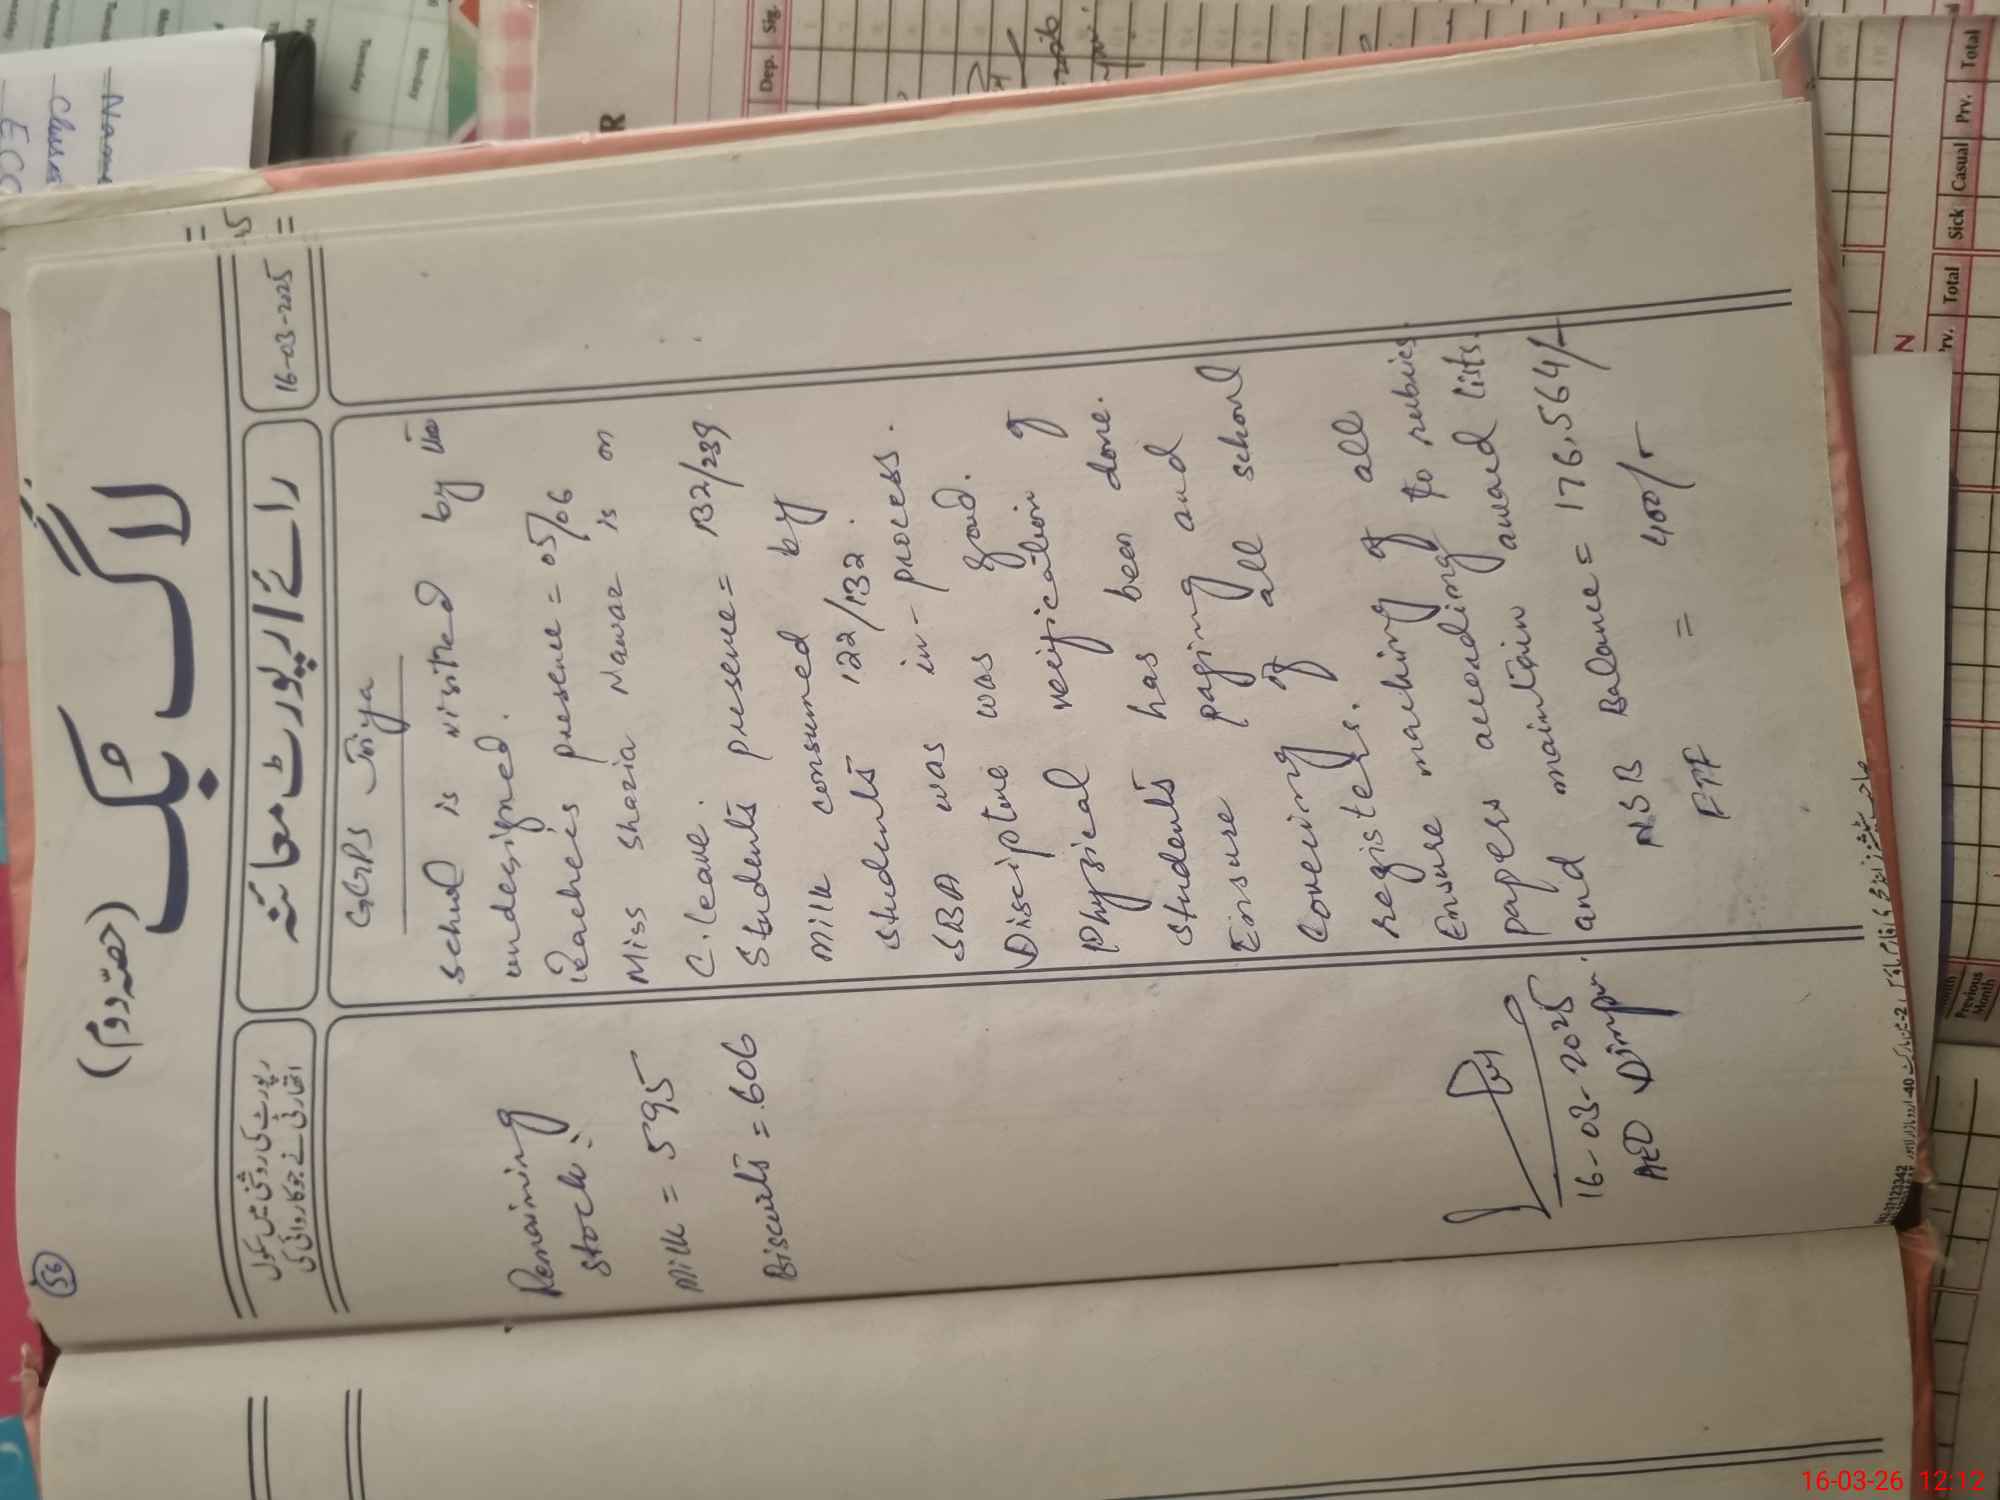 56
لاگ بک
(حصّہ دوم)
رائے / رپورٹ معائنہ
رپورٹ کی روشنی میں سکول
اتھارٹی نے جو کاروائی کی
16-03-2025
GGPS Joiya
school is visited by the
undesigned.
Teachers presence = 05/06
Miss Shazia Nawaz is on
C. leave.
Students presence = 132/239
Milk consumed by
students 122/132.
SBA was in-process.
Discipline was good.
Physical verification of
students has been done.
Ensure paging and
Covering of all school
registers.
Ensure marking of all
papers according to rubrics
and maintain award lists.
NSB Balance = 176,564/-
FTF = 400/-
Remaining
stock:
Milk = 595
Biscuits = 606
16-03-2025
AEO
Name
Class
Monday
Tuesday
Dep. Sig.
R
Sick Casual Prv. Total
Prv. Total
N
Previous
Month
16-03-26 12:12